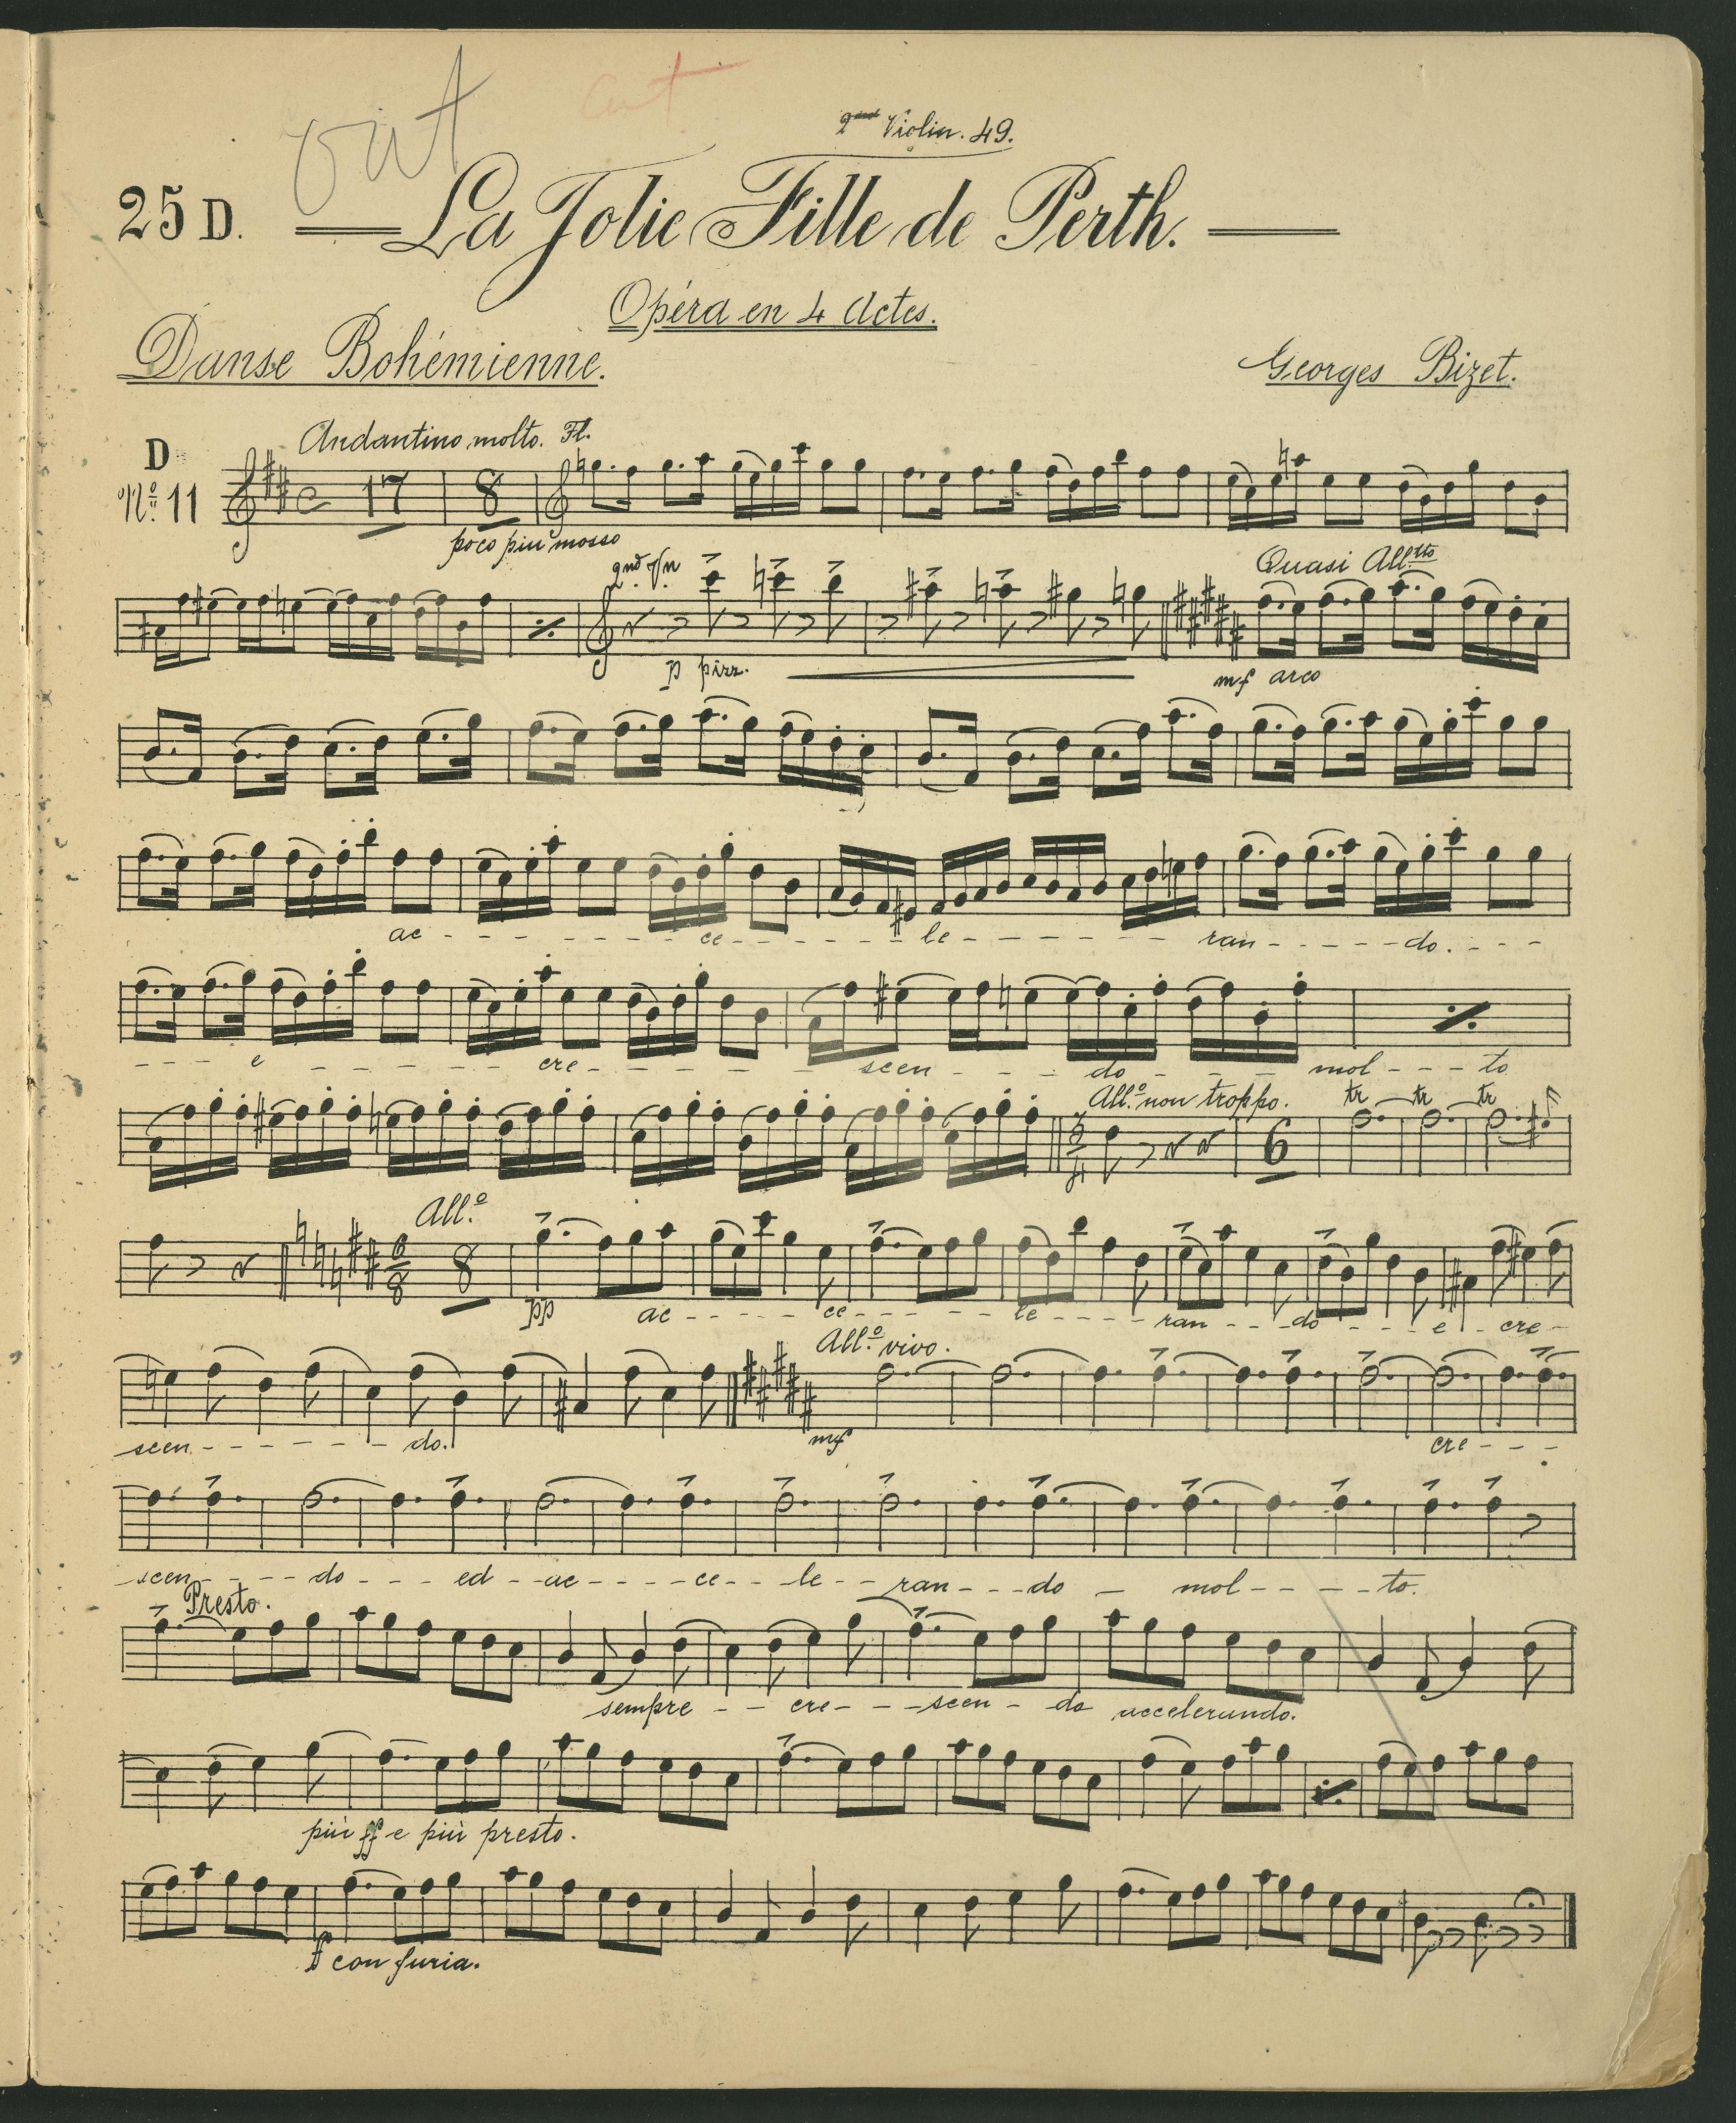 cut cut
2nd Violin. 49.
25 D. La Jolie Fille de Perth.
Opéra en 4 Actes.
Danse Bohémienne. Georges Bizet.
Andantino molto. Fl.
D
No. 11 17 8
poco piu mosso
2nd Vn Quasi Alltto
p pizz. mf arco
ac - ce - le - ran - do.
e cre - scen - do mol - to
All.o non troppo. tr tr tr
3/4 6
All.o
6/8 8
pp ac - ce - le - ran - do e cre -
All.o vivo.
scen - do. mf cre -
scen - do ed ac - ce - le - ran - do mol - to.
Presto.
sempre cre - scen - do accelerando.
più ff e più presto.
ff con furia.